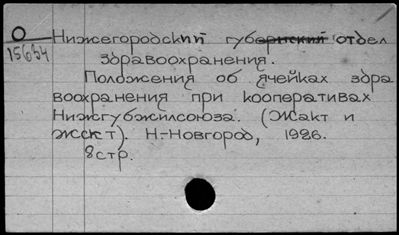 О
15654
Нижегородский губернский отдел
здравоохранения.
Положения об ячейках здра
воохранения при кооперативах
Нижгубжилсоюза. (Жакт и
жскт). Н-Новгород, 1926.
8стр.